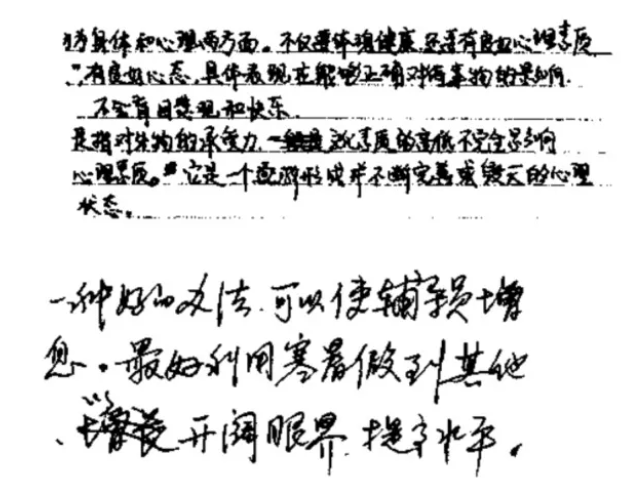 身体和心理两方面。不仅要体现健康,还要有良好心理素质
"有良好心态,具体表现在能够正确对待事物的影响,
不会盲目悲观和快乐.
是指对外物的承受力,文化素质的高低不完全影响
心理素质。它是一个逐渐形成并不断完善或毁灭的心理
状态。
一种好的办法,可以使辅导员增
息。最好利用寒暑假到其他
、开阔眼界,提高水平。